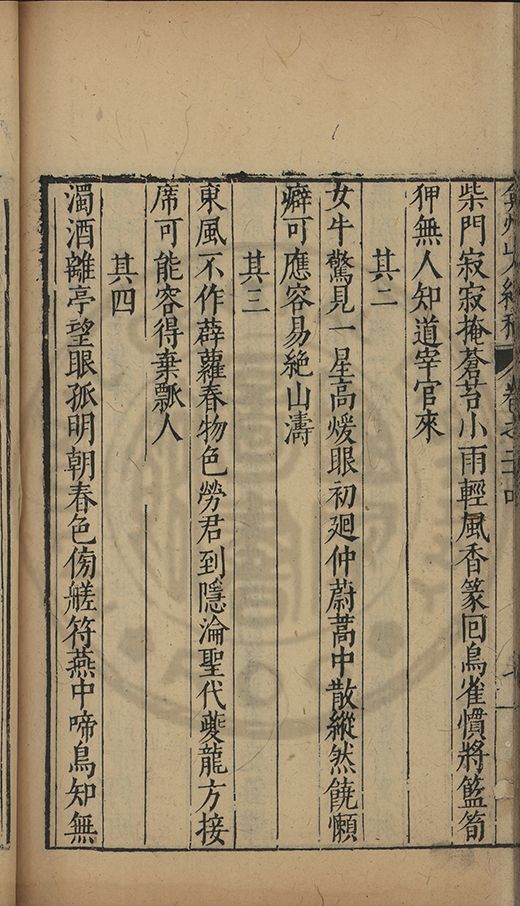 柴門寂寂掩蒼苔小雨輕風香篆回鳥雀慣將籃筍
狎無人知道宰官來
其二
女牛驚見一星高煖眼初廻仲蔚蒿中散縱然饒懶
癖可應容易絶山濤
其三
東風不作薜蘿春物色勞君到隱淪聖代夔龍方接
席可能容得棄瓢人
其四
濁酒離亭望眼孤明朝春色傍艖符燕中啼鳥知無